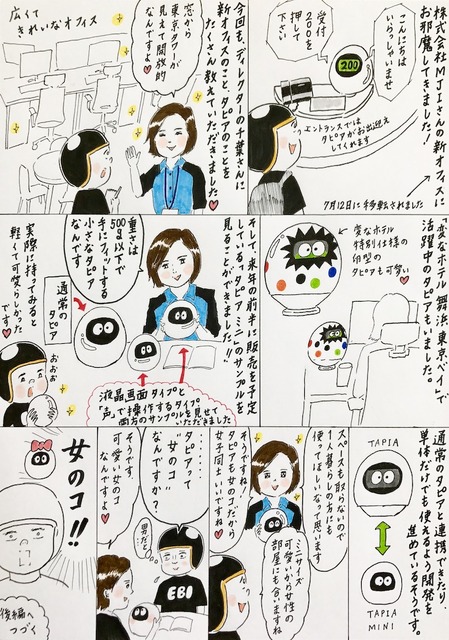 株式会社MJIさんの新オフィスに
お邪魔してきました!
こんにちは
いらっしゃいませ
受付
200を
押して
下さい
200
エントランスでは
タピアがお出迎え
してくれます
7月12日に移転されました
今回も、ディレクターの千葉さんに
新オフィスのこと、タピアのことを
たくさん教えていただきました♥
窓から
東京タワーが
見えて開放的
なんですよ♥
広くて
きれいなオフィス
「変なホテル 舞浜 東京ベイ」で
活躍中のタピアもいました。
変なホテル
特別仕様の
卵型の
タピアも可愛い♥
そして、来年の前半に販売を予定
している、「タピアミニ」のサンプルを
見ることができました!!
重さは
500g以下で
手にフィットする
小さなタピア
なんです
通常の
タピア
液晶画面タイプと
「声」で操作するタイプ
両方のサンプルを見せて
いただきました
実際に持ってみると
軽くて可愛らしかった
です♥
おおお
通常のタピアと連携できたり、
単体だけでも使えるよう開発を
進めているそうです。
TAPIA
TAPIA
MINI
スペースも取らないので
1人暮らしの方にも
使ってほしいなって思います
ミニサイズ
可愛いから女性の
部屋にも合いますね
そうですね!
タピアも女のコだから
女子同士いいですね♥
………
タピアって
“女のコ”
なんですか?
男かと…
EBI
そうですよ
可愛い女のコ
なんですよ♥
女のコ!!
後編へ
つづく